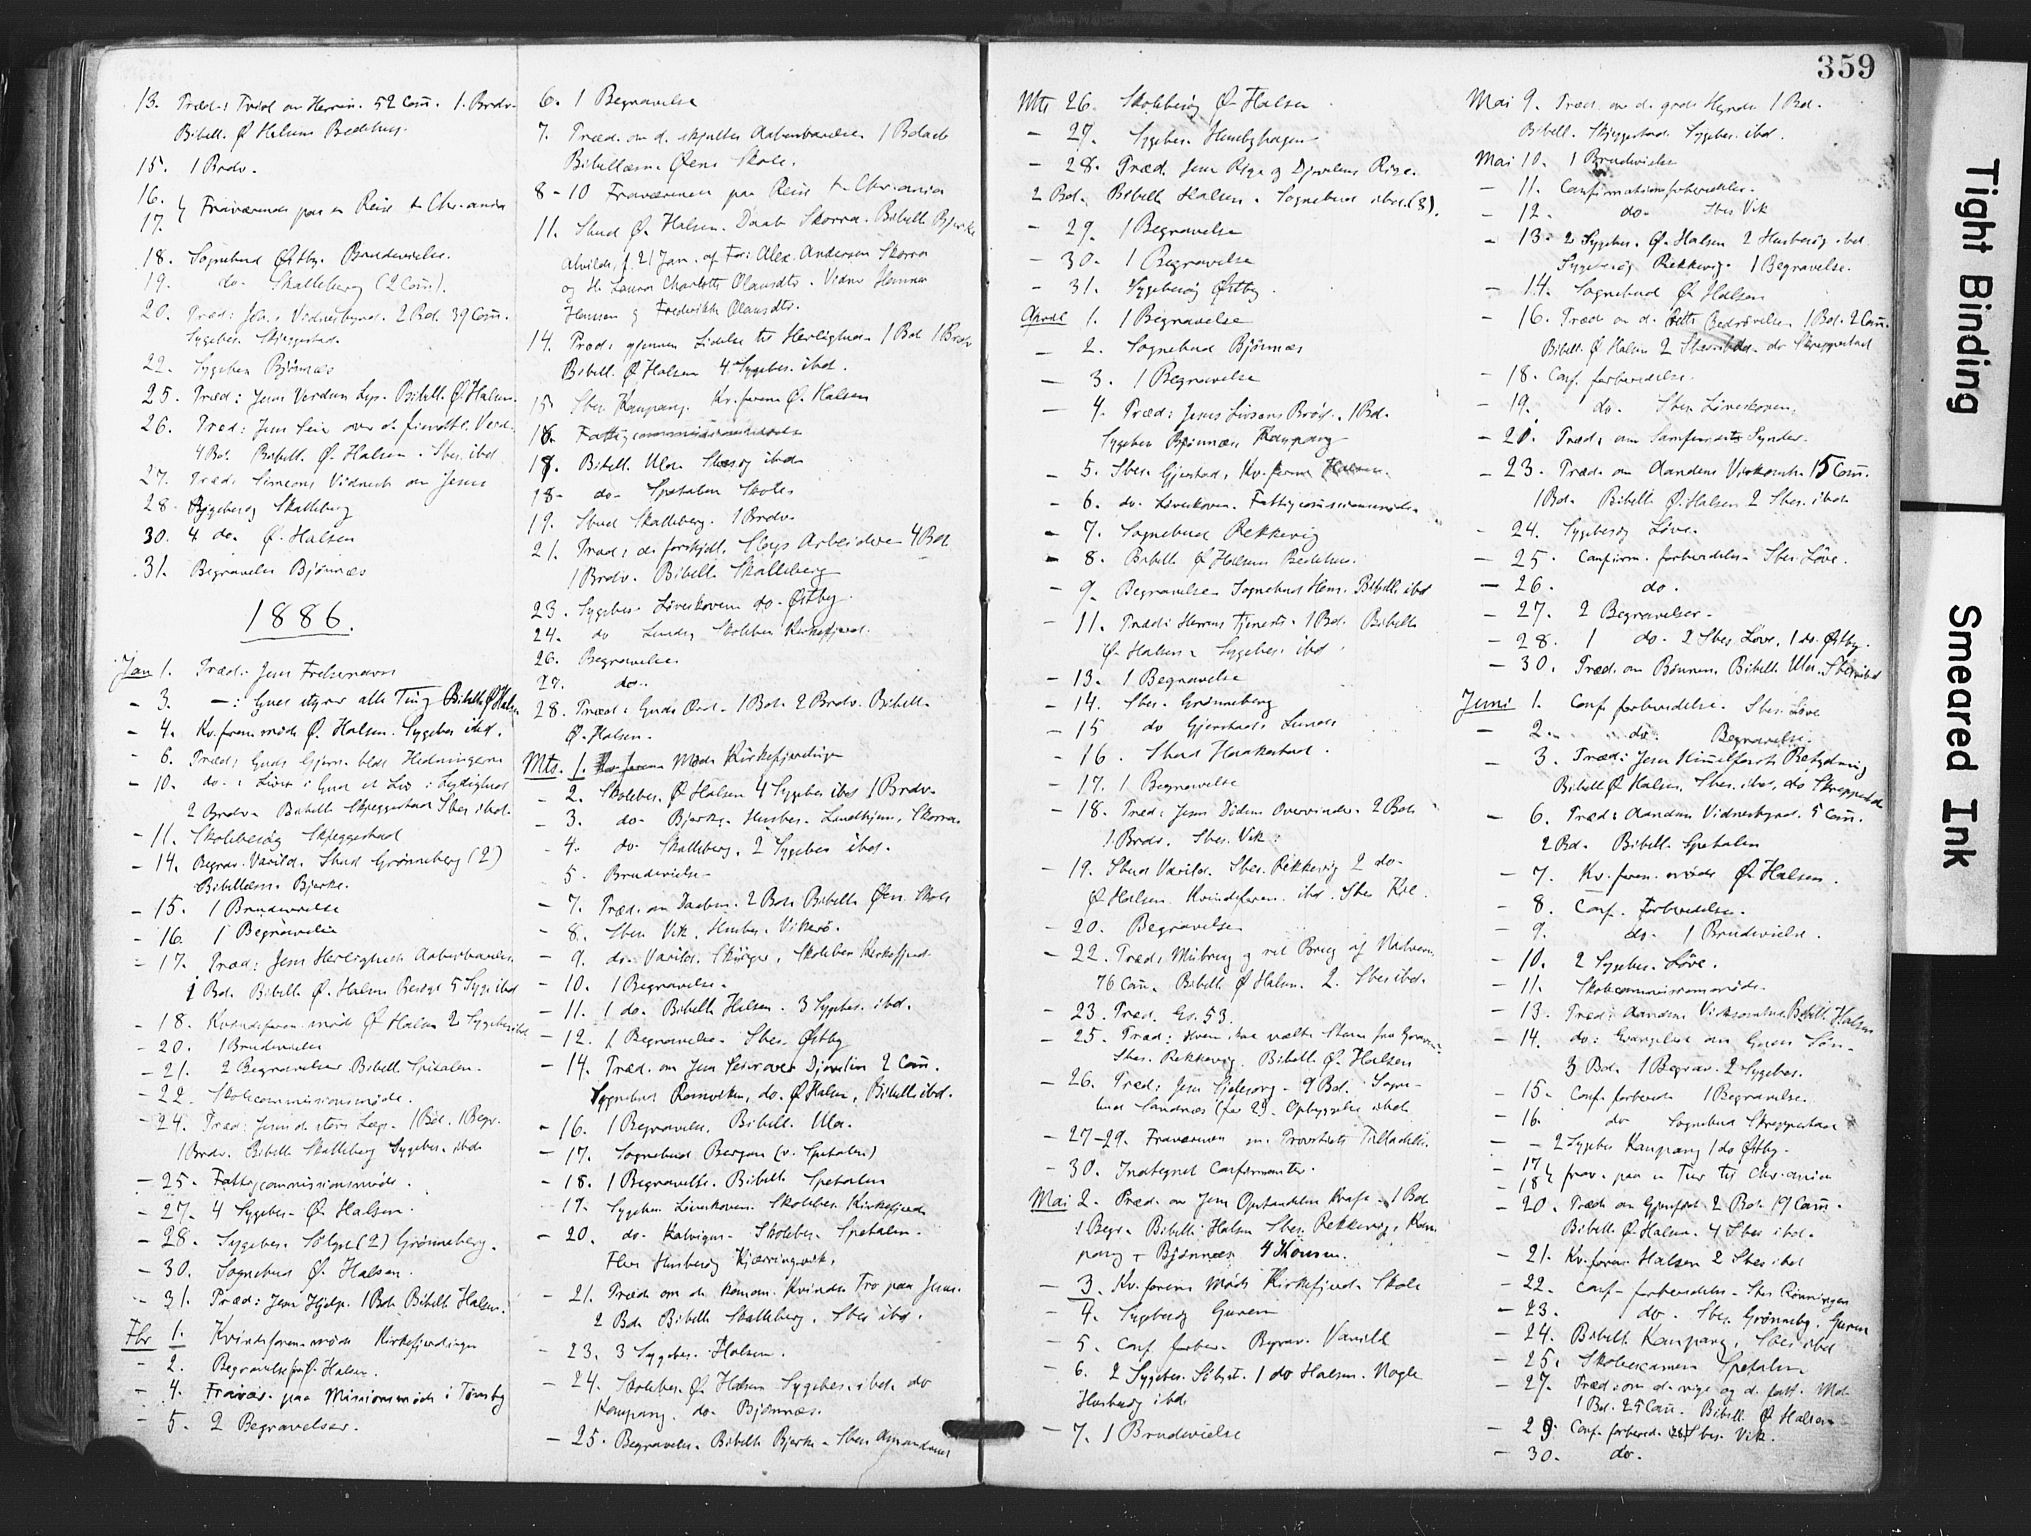 13. Præd: Tvivl om Herren. 52 Com. 1 Brdv.
Bibell. Ø. Halsens Bedehus.
15. 1 Brdv.
16.
17. Fraværende paa en Reise t. Chr.ania
18. Sognebud Østby. Brudevielse.
19. do. Skalleberg (2 Com).
20. Præd: Joh.s Vidnesbyrd. 2 Bd. 39 Com.
Sygebes. Skjeggestad.
22. Sygebes Bjønnæs
25. Præd: Jesus Verdens Lys. Bibell. Ø. Halsen.
26. Præd: Jesu Seier over d. fiendtl. Verd.
4 Bd. Bibell. Ø. Halsen. Sbes. ibd
27. Præd. Simeons Vidnesb. om Jesus
28. Sygebesøg Skalleberg
30. 4 do. Ø. Halsen
31. Begravelse Bjønnæs
1886.
Jan 1. Præd: Jesu Frelsernavn
- 3. — : Gud styrer alle Ting Bibell. Ø. Halsen
- 4. Kv.foren.møde Ø. Halsen. Sygebes ibd.
- 6. Præd: Guds Gjern. bldt Hedningerne
- 10. do: Livet i Gud et Liv i Lydighed
2 Brdv. Bibell. Skjeggestad Sbes ibd.
- 11. Skolebesøg Skjeggestad
- 14. Begrav. Varild. Sbud Grønneberg (2)
Bibellæsn. Bjerke.
- 15. 1 Brudevielse
- 16. 1 Begravelse
- 17. Præd: Jesu Herligheds Aabenbarelse
1 Bd. Bibell. Ø. Halsen Besøgt 5 Syge ibd
- 18. Kvindeforen.møde Ø. Halsen 2 Sygebes ibd
- 20. 1 Brudevielse
- 21. 2 Begravelser Bibell. Spetalen.
- 22. Skolecommissionsmøde.
- 24. Præd: Jesus d. store Læge. 1 Bd. 1 Begr.
1 Brdv. Bibell. Skalleberg Sygebes. ibd
- 25. Fattigcommissionsmøde.
- 27. 4 Sygebes. Ø. Halsen.
- 28. Sygebes. Sølyst (2) Grønneberg.
- 30. Sognebud Ø. Halsen.
- 31. Præd: Jesu Hjælp. 1 Bd. Bibell. Halsen.
Fbr 1. Kvindeforen.møde Kirkefjerdingen
- 2. Begravelse fra Ø. Halsen.
- 4. Fravær. paa Missionsmøde i Tønsbg
- 5. 2 Begravelser.
6. 1 Begravelse
7. Præd. om d. skjulte Aabenbarelse 1 Bdaab
Bibellæsn. Øens Skole.
8 - 10 Fraværende paa Reise t. Chr.ania
11. Sbud Ø. Halsen. Daab Skorra. Bibell. Bjerke
Alvilde, f. 21 Jan. af For: Alex. Andersen Skorra
og H. Laura Charlotte Olausdtr. Vidner Henner
Hansen og Fredrikke Olausdtr.
14. Præd: gjennem Lidelse til Herlighed. 1 Bd 1 Brdv
Bibell. Ø. Halsen 4 Sygebes. ibd.
15 Sbes. Kaupang. Kv.foren Ø. Halsen
16. Fattigcommissionsmøde
17. Bibell. Ula. Sbesøg ibd
18. do. Spetalen Skole
19. Sbud Skalleberg. 1 Brdv.
21. Præd: de forskjell. Slags Arbeidere 4 Bd
1 Brdv. Bibell. Skalleberg
23. Sygebes. Løveskoven do. Østby.
24. do Lunde, Skolebes Kirkefjerd.
26. Begravelse.
27. do.
28. Præd: Guds Ord. 1 Bd. 2 Brdv. Bibell.
Ø. Halsen.
Mts. 1. Kv.foren Møde Kirkefjerdingen
- 2. Skolebes. Ø. Halsen 4 Sygebes ibd 1 Brdv.
- 3. do. Bjerke. Husbes. Lundhjem, Skorra.
- 4. do Skalleberg. 2 Sygebes ibd.
- 5. Brudevielse
- 7. Præd. om Daaben. 2 Bd. Bibell. Øens Skole
- 8. Sbes. Vik. Husbes. Vikerø.
- 9. do. Varild. Skolebes Kirkefjerd.
- 10. 1 Begravelse.
- 11. 1 do. Bibell. Halsen. 3 Sygebes. ibd.
- 12. 1 Begravelse. Sbes. Østby
- 14. Præd. om Jesu Seier over Djævelen 2 Com.
Sygebud Ramviken, do. Ø. Halsen, Bibell. ibd.
- 16. 1 Begravelse. Bibell. Ula.
- 17. Sognebud Bergan (v. Spetalen)
- 18. 1 Begravelse. Bibell. Spetalen
- 19. Sygebes Løveskoven. Skolebes. Kirkefjerd
- 20. do. Kalvigen. Skolebes. Spetalen.
Flere Husbesøg Kjærringvik.
- 21. Præd. om de kanan. Kvindes Tro paa Jesus.
2 Bd. Bibell. Skalleberg. Sbes ibd.
- 23. 3 Sygebes. Halsen.
- 24. Skolebes. Ø. Halsen Sygebes. ibd. do
Kaupang. do. Bjønnæs.
- 25. Begravelse. Bibell. Bjerke. Sbes Amundrød
359
Mts 26. Skolebesøg Ø. Halsen
- 27. Sygebes. Humbyhagen
- 28. Præd. Jesu Rige og Djævelens Rige.
2 Bd. Bibell. Halsen. Sognebud ibd. (8).
- 29. 1 Begravelse
- 30. 1 Begravelse
- 31. Sygebesøg Østby.
April 1. 1 Begravelse
- 2. Sognebud Bjønnæs
- 3. 1 Begravelse
- 4. Præd: Jesus Livsens Brød. 1 Bd.
Sygebes Bjønnæs Kaupang
- 5. Sbes. Gjerstad, Kv.foren Halsen.
- 6. do. Løveskoven. Fattigcommissionsmøde
- 7. Sognebud Rekkevig
- 8. Bibell. Ø. Halsens Bedehus.
- 9. Begravelse. Sognebud Hem. Bibell. ibd
- 11. Præd: Herrens Tjeneste. 1 Bd. Bibell.
Ø. Halsen. Sygebes. ibd.
- 13. 1 Begravelse
- 14. Sbes. Grønneberg
- 15 do Gjerstad. Lunde
- 16. Sbud Haakestad.
- 17. 1 Begravelse
- 18. Præd: Jesus Dødens Overvinder. 2 Bd.
1 Brdv. Sbes. Vik.
- 19. Sbud Varild. Sbes. Rekkevig 2 do.
Ø. Halsen. Kvindeforen. ibd. Sbes Kle.
- 20. Begravelse
- 22. Præd. Misbrug og ret Brug af Nadveren
76 Com. Bibell. Ø. Halsen. 2. Sbes ibd.
- 23. Præd. Es. 53.
- 25. Præd: Hvem skal vælte Stenen fra Graven
Sbes. Rekkevig. Bibell. Ø. Halsen
- 26. Præd: Jesu Sjælesorg. 9 Bd. Sogne-
bud Sandnæs (for 2). Opbyggelse ibd.
- 27-29. Fraværende
- 30. Indtegnet Confirmanter.
Mai 2. Præd. om Jesu Opstandelses Kraft. 1 Bd.
1 Begr. Bibell. Halsen Sbes. Rekkevig, Kau
pang + Bjønnæs
- 3. Kv.forens Møde Kirkefjerd. Skole
- 4. Sygebesøg Guren
- 5. Conf. forber. Begrav. Varild
- 6. 2 Sygebes. Sølyst. 1 do Halsen. Nogle
Husbesøg ibd.
- 7. 1 Brudevielse
Mai 9. Præd. om d. gode Hyrde 1 Bd.
Bibell. Skjeggestad Sygebes. ibd.
Mai 10. 1 Brudevielse
- 11. Confirmationsforberedelse.
- 12. do. Sbes Vik
- 13. 2 Sygebes. Ø. Halsen 2 Husbesøg ibd.
Sygebesøg Rekkevig. 1 Begravelse.
- 14. Sognebud Ø. Halsen
- 16. Præd. om d. rette Bedrøvelse 1 Bd. 2 Com.
Bibell. Ø. Halsen 2 Sbes ibd. do Skreppestad
- 18. Conf. forberedelse.
- 19. do. Sbes. Løveskoven.
- 20. Præd: om Samfundets Synder.
- 23. Præd. om Aandens Virksomh. 15 Com.
1 Bd. Bibell. Ø. Halsen 2 Sbes. ibd.
- 24. Sygebesøg Løve.
- 25. Confirm. forberedelse Sbes. Løve.
- 26. do.
- 27. 2 Begravelser.
- 28. 1 do. 2 Sbes Løve, 1 do. Østby.
- 30. Præd. om Bønnen. Bibell. Ula. Sbes ibd
Juni 1. Conf. forberedelse. Sbes. Løve
- 2. do. Begravelse.
- 3. Præd: Jesu Himmelfarts Betydning
Bibell Ø. Halsen. Sbes. ibd, do Skreppestad
- 6. Præd: Aandens Vidnesbyrd. 5 Com.
2 Bd. Bibell. Spetalen
- 7. Kv.foren.møde Ø. Halsen.
- 8. Conf. forberedelse.
- 9. do. 1 Brudevielse.
- 10. 2 Sygebes. Løve.
- 11. Skolecommissionsmøde.
- 13. Præd: Aandens Virksomhed. Bibell. Halsen
- 14. do: Evangeliet om Guds Søn.
3 Bd. 1 Begrav. 2 Sygebes.
- 15. Conf. forbered. 1 Begravelse.
- 16. do Sognebud Skreppestad
- - 2 Sygebes Kaupang 1 do Østby.
- 17
- 18 frav. paa en Tur til Chr.ania
- 20. Præd. om Gjenfød. 2 Bd. 19 Com.
Bibell. Ø. Halsen. 4 Sbes ibd.
- 21. Kv.foren. Halsen 2 Sbes ibd
- 22. Conf. forberedelse. Sbes Rønningen
- 23. do. Sbes. Grønneby. Guren
- 24. Bibell. Kaupang. Sbes ibd
- 25. Skoleexamen Spetalen
- 27. Præd: om d. rige og d. fatt. Md
1 Bd. 25 Com. Bibell. Ø. Halsen
- 29. Conf. forbered. Sbes. Vik.
- 30. do.
Tight Binding
Smeared Ink